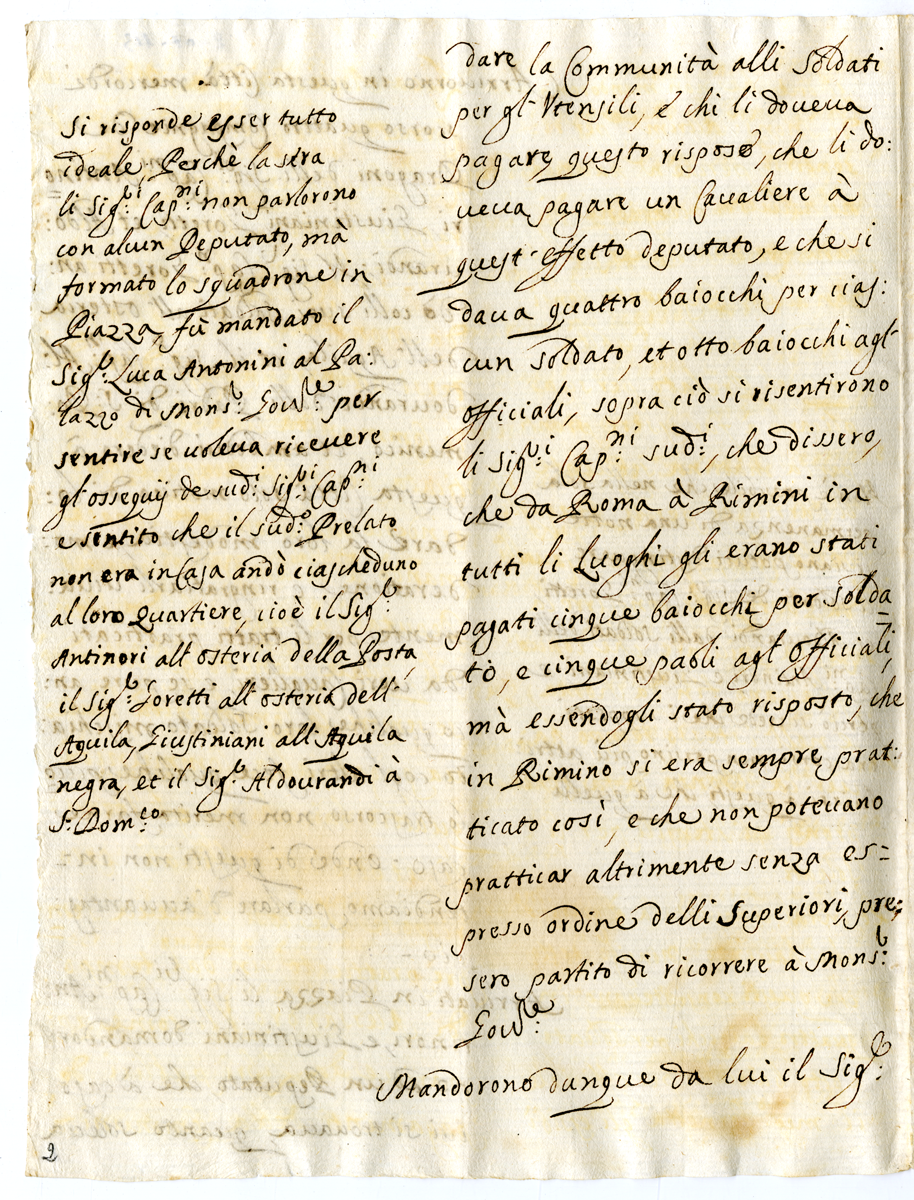 Si risponde esser tutto
ideale. Perchè la sera
li Sig:ri Cap:ni non parlorono
con alcun Deputato, mà
formato lo squadrone in
Piazza, fù mandato il
Sig:r Luca Antonini al Pa:
lazzo di Mons:r Gov:re per
sentire se voleva ricevere
gl'ossequij de sud:i Sig:ri Cap:ni
e sentito che il sud:o Prelato
non era in Casa andò ciascheduno
al loro Quartiere, cioè il Sig:r
Antinori all'osteria della Posta,
il Sig:r Goretti all'osteria dell'
Aquila, Giustiniani all'Aquila
negra, et il Sig:r Aldourandi à
S: Dom:co
dare la Communità alli Soldati
per gl'Utensili, e chi li doveva
pagare, questo rispose, che li do:
veva pagare un Cavaliere à
quest'effetto deputato, e che si
dava quattro baiocchi per cias:
cun soldato, et otto baiocchi agl'
officiali, sopra ciò si risentirono
li Sig:ri Cap:ni sud:i, che dissero,
che da Roma à Rimini in
tutti li Luoghi gli erano stati
pagati cinque baiocchi per solda
to, e cinque paoli agl'officiali,
mà essendogli stato risposto, che
in Rimino si era sempre prat:
ticato così, e che non potevano
pratticar altrimente senza es=
presso ordine delli Superiori, pre:
sero partito di ricorrere à Mons:r
Gov:re
Mandorono dunque da lui il Sig:r
2